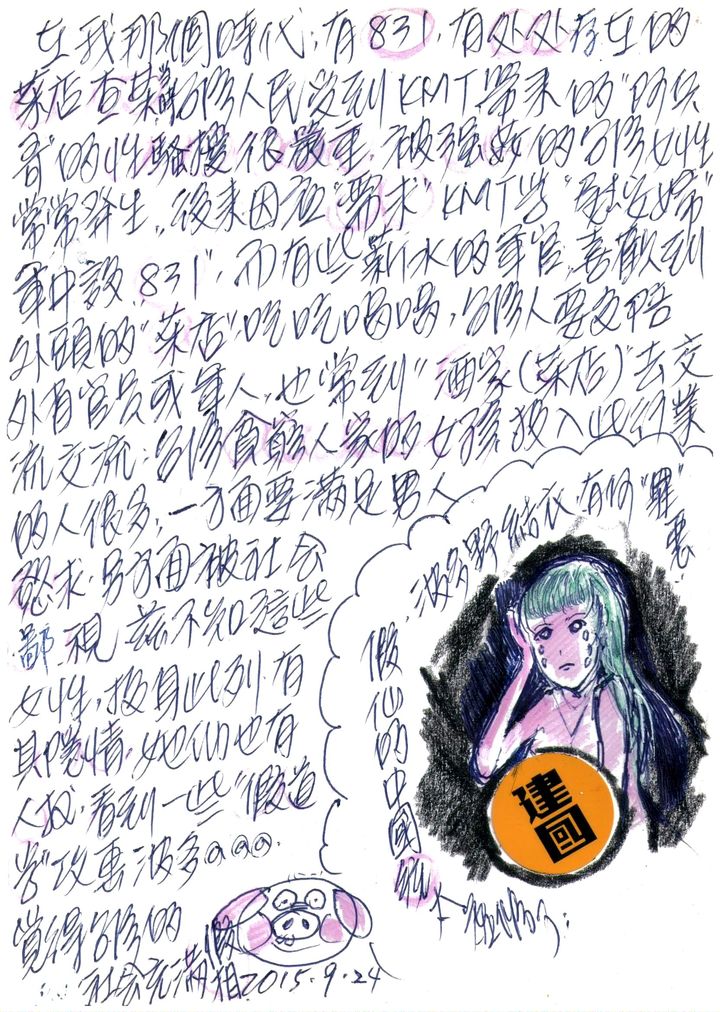 在我那個時代,有831,有处处存在的
菜店查某,台灣人民受到KMT帶來的"阿兵
哥"的性騷擾很嚴重,被强姦的台灣女性
常常發生。後來因為"需求"KMT学"慰安婦"
軍中設"831",而有些薪水的軍官,喜歡到
外頭的"菜店"吃吃喝喝,台灣人要交陪
外省官員或軍人,也常到"酒家(菜店)"去交
流交流,台灣貧窮人家的女孩投入此行業
的人很多。一方面要滿足男人
慾求,另方面被社会
鄙視,兹不知這些
女性,投身此列,有
其隱情,她们也有
人权,看到一些"假道
学"攻惠波多@@@.
覺得台灣的
社会充滿假
相2015.9.24
波多野結衣,有何"罪"惡.
假仙的中國
建國